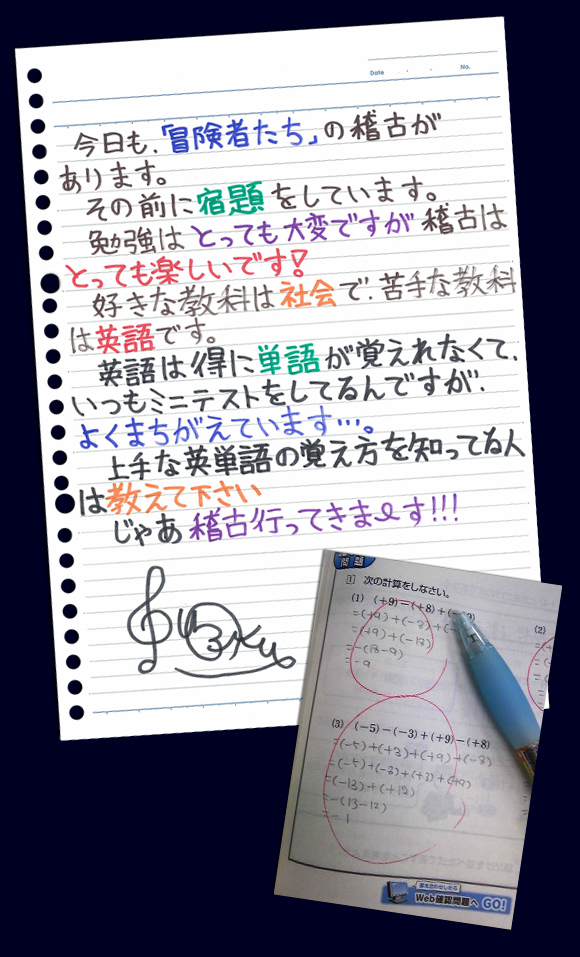 Date ・ ・ No.
今日も、「冒険者たち」の稽古が
あります。
その前に宿題をしています。
勉強はとっても大変ですが稽古は
とっても楽しいです!
好きな教科は社会で、苦手な教科
は英語です。
英語は得に単語が覚えれなくて、
いつもミニテストをしてるんですが、
よくまちがえています…。
上手な英単語の覚え方を知ってる人
は教えて下さい
じゃあ稽古行ってきまーす!!!
問題
1 次の計算をしなさい。
(1) (+9)−(+8)+(−
=(+9)+(−8)+(−
=(+9)+(−13)
=−(13−9)
(2)
(3) (−5)−(−3)+(+9)−(+8)
=(−5)+(+3)+(+9)+(−8)
=(−5)+(−8)+(+3)+(+9)
=(−13)+(+12)
=−(13−12)
=−1
答え合わせしたら
Web確認問題へ GO!